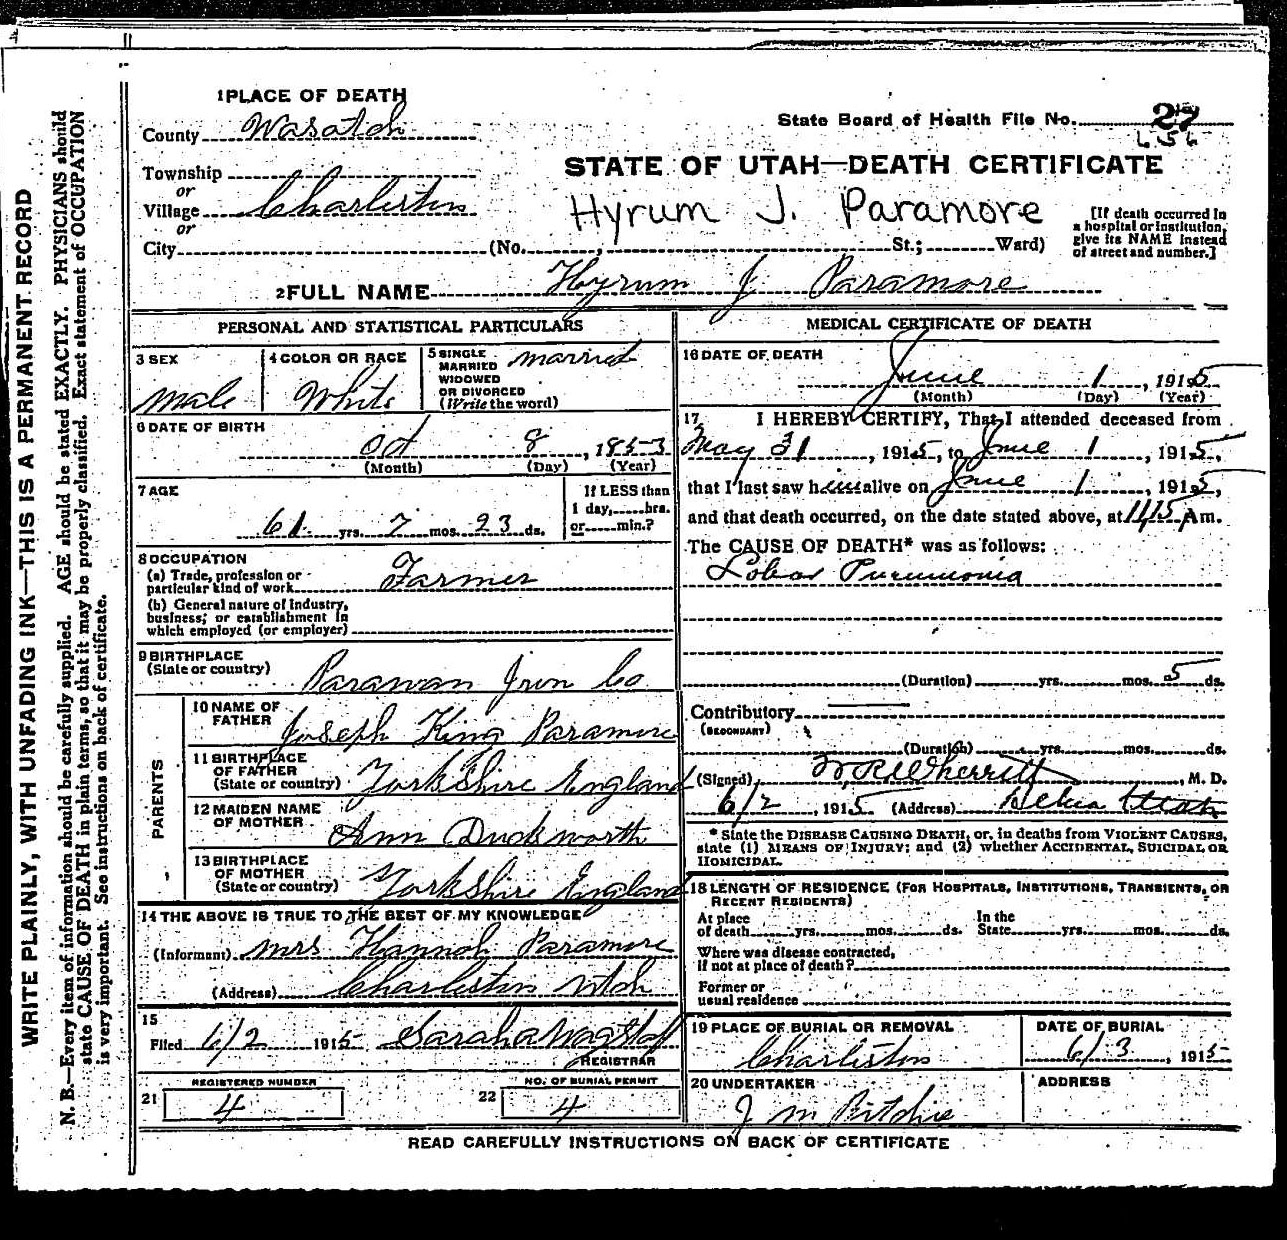 4
1 PLACE OF DEATH
County Wasatch
State Board of Health File No. 27
656
Township
or
Village Charleston
or
City (No. , St.; Ward)
STATE OF UTAH—DEATH CERTIFICATE
Hyrum J. Paramore
[If death occurred in
a hospital or institution,
give its NAME instead
of street and number.]
2 FULL NAME Hyrum J Paramore
PERSONAL AND STATISTICAL PARTICULARS
3 SEX
Male
4 COLOR OR RACE
White
5 SINGLE
MARRIED
WIDOWED
OR DIVORCED
(Write the word)
married
6 DATE OF BIRTH
Oct 8, 1853
(Month) (Day) (Year)
7 AGE
61 yrs. 7 mos. 23 ds.
If LESS than
1 day, hrs.
or min.?
8 OCCUPATION
(a) Trade, profession or
particular kind of work Farmer
(b) General nature of industry,
business, or establishment in
which employed (or employer)
9 BIRTHPLACE
(State or country) Parawan Iron Co
PARENTS
10 NAME OF
FATHER Joseph King Paramore
11 BIRTHPLACE
OF FATHER
(State or country) Yorkshire England
12 MAIDEN NAME
OF MOTHER Ann Duckworth
13 BIRTHPLACE
OF MOTHER
(State or country) Yorkshire England
14 THE ABOVE IS TRUE TO THE BEST OF MY KNOWLEDGE
(Informant) Mrs Hannah Paramore
(Address) Charleston Utah
15
Filed 6/2 1915 Sarah A Wagstaff
REGISTRAR
REGISTERED NUMBER
21 4
NO. OF BURIAL PERMIT
22 4
MEDICAL CERTIFICATE OF DEATH
16 DATE OF DEATH
June 1, 1915
(Month) (Day) (Year)
17 I HEREBY CERTIFY, That I attended deceased from
May 31, 1915, to June 1, 1915,
that I last saw him alive on June 1, 1915,
and that death occurred, on the date stated above, at 11,15 Am.
The CAUSE OF DEATH* was as follows:
Lobar Pneumonia
(Duration) yrs. mos. 5 ds.
Contributory
(SECONDARY)
(Duration) yrs. mos. ds.
(Signed) W R Wherritt, M. D.
6/2, 1915 (Address) Heber Utah
* State the DISEASE CAUSING DEATH, or, in deaths from VIOLENT CAUSES,
state (1) MEANS OF INJURY; and (2) whether ACCIDENTAL, SUICIDAL, OR
HOMICIDAL.
18 LENGTH OF RESIDENCE (FOR HOSPITALS, INSTITUTIONS, TRANSIENTS, OR
RECENT RESIDENTS)
At place
of death yrs. mos. ds.
In the
State yrs. mos. ds.
Where was disease contracted,
if not at place of death?
Former or
usual residence
19 PLACE OF BURIAL OR REMOVAL
Charleston
DATE OF BURIAL
6/3, 1915
20 UNDERTAKER
J M Ritchie
ADDRESS
READ CAREFULLY INSTRUCTIONS ON BACK OF CERTIFICATE
WRITE PLAINLY, WITH UNFADING INK—THIS IS A PERMANENT RECORD
N. B.—Every item of information should be carefully supplied. AGE should be stated EXACTLY. PHYSICIANS should
state CAUSE OF DEATH in plain terms, so that it may be properly classified. Exact statement of OCCUPATION
is very important. See instructions on back of certificate.